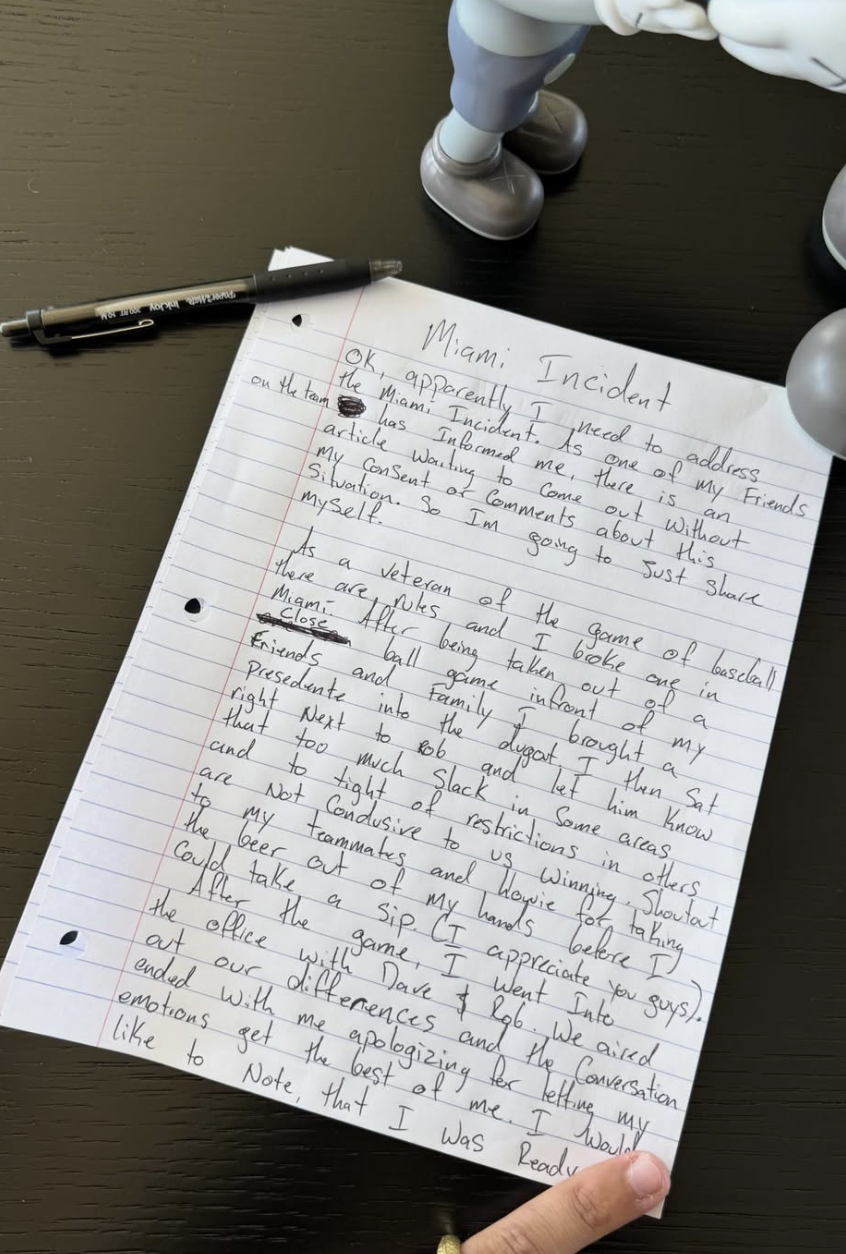 PaperMate InkJoy 300 RT 1.0M
Miami Incident
OK, apparently I need to address
the Miami Incident. As one of my Friends
on the team has Informed me, there is an
article waiting to come out without
my consent or Comments about this
Situation. So Im going to Just share
myself.
As a veteran of the game of baseball
there are rules and I broke one in
Miami. After being taken out of a
Close ball game infront of my
Friends and Family I brought a
Presedente into the dugout. I then Sat
right Next to Rob and let him know
that too much Slack in Some areas
and to tight of restrictions in others
are Not Condusive to us winning. Shoutout
to my teammates and Howie for taking
the beer out of my hands before I
Could take a Sip. (I appreciate you guys).
After the game, I went Into
the office with Dave & Rob. We aired
out our differences and the Conversation
ended with me apologizing for letting my
emotions get the best of me. I would
like to Note, that I was Ready